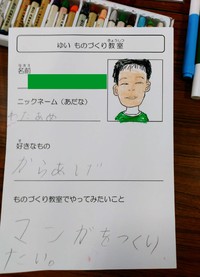 ゆい ものづくり教室
きょうしつ
なまえ
名前
ニックネーム（あだな）
好きなもの
からあげ
ものづくり教室でやってみたいこと
マンガをつくり
たい。